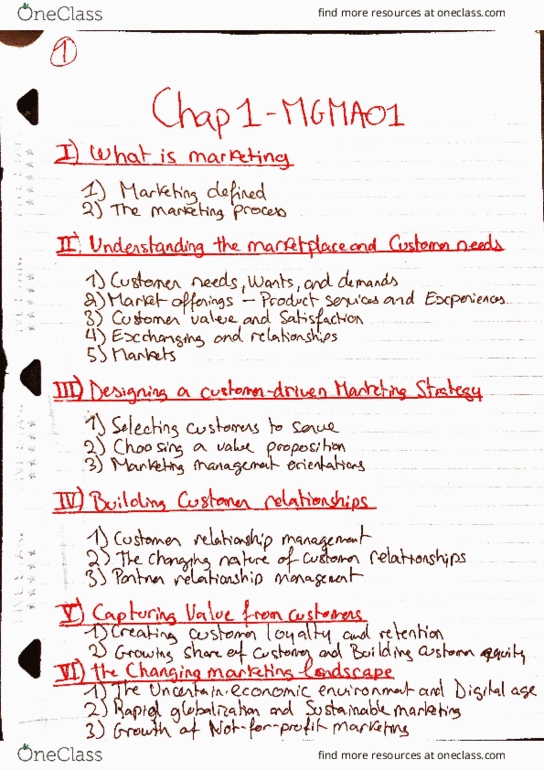 OneClass
find more resources at oneclass.com
1
Chap 1 - MGMA01
I) What is marketing
1) Marketing defined
2) The marketing process
II) Understanding the marketplace and Customer needs
1) Customer needs, Wants, and demands
2) Market offerings - Product services and Experiences
3) Customer value and Satisfaction
4) Exchanging and relationships
5) Markets
III) Designing a customer-driven Marketing Strategy
1) Selecting customers to serve
2) Choosing a value proposition
3) Marketing management orientations
IV) Building Customer relationships
1) Customer relationship management
2) The changing nature of customer relationships
3) Partner relationship management
V) Capturing Value from customers
1) Creating customer loyalty and retention
2) Growing share of customer and Building customer equity
VI) the Changing marketing landscape
1) The Uncertain economic environment and Digital age
2) Rapid globalization and Sustainable marketing
3) Growth of Not-for-profit marketing
OneClass
find more resources at oneclass.com